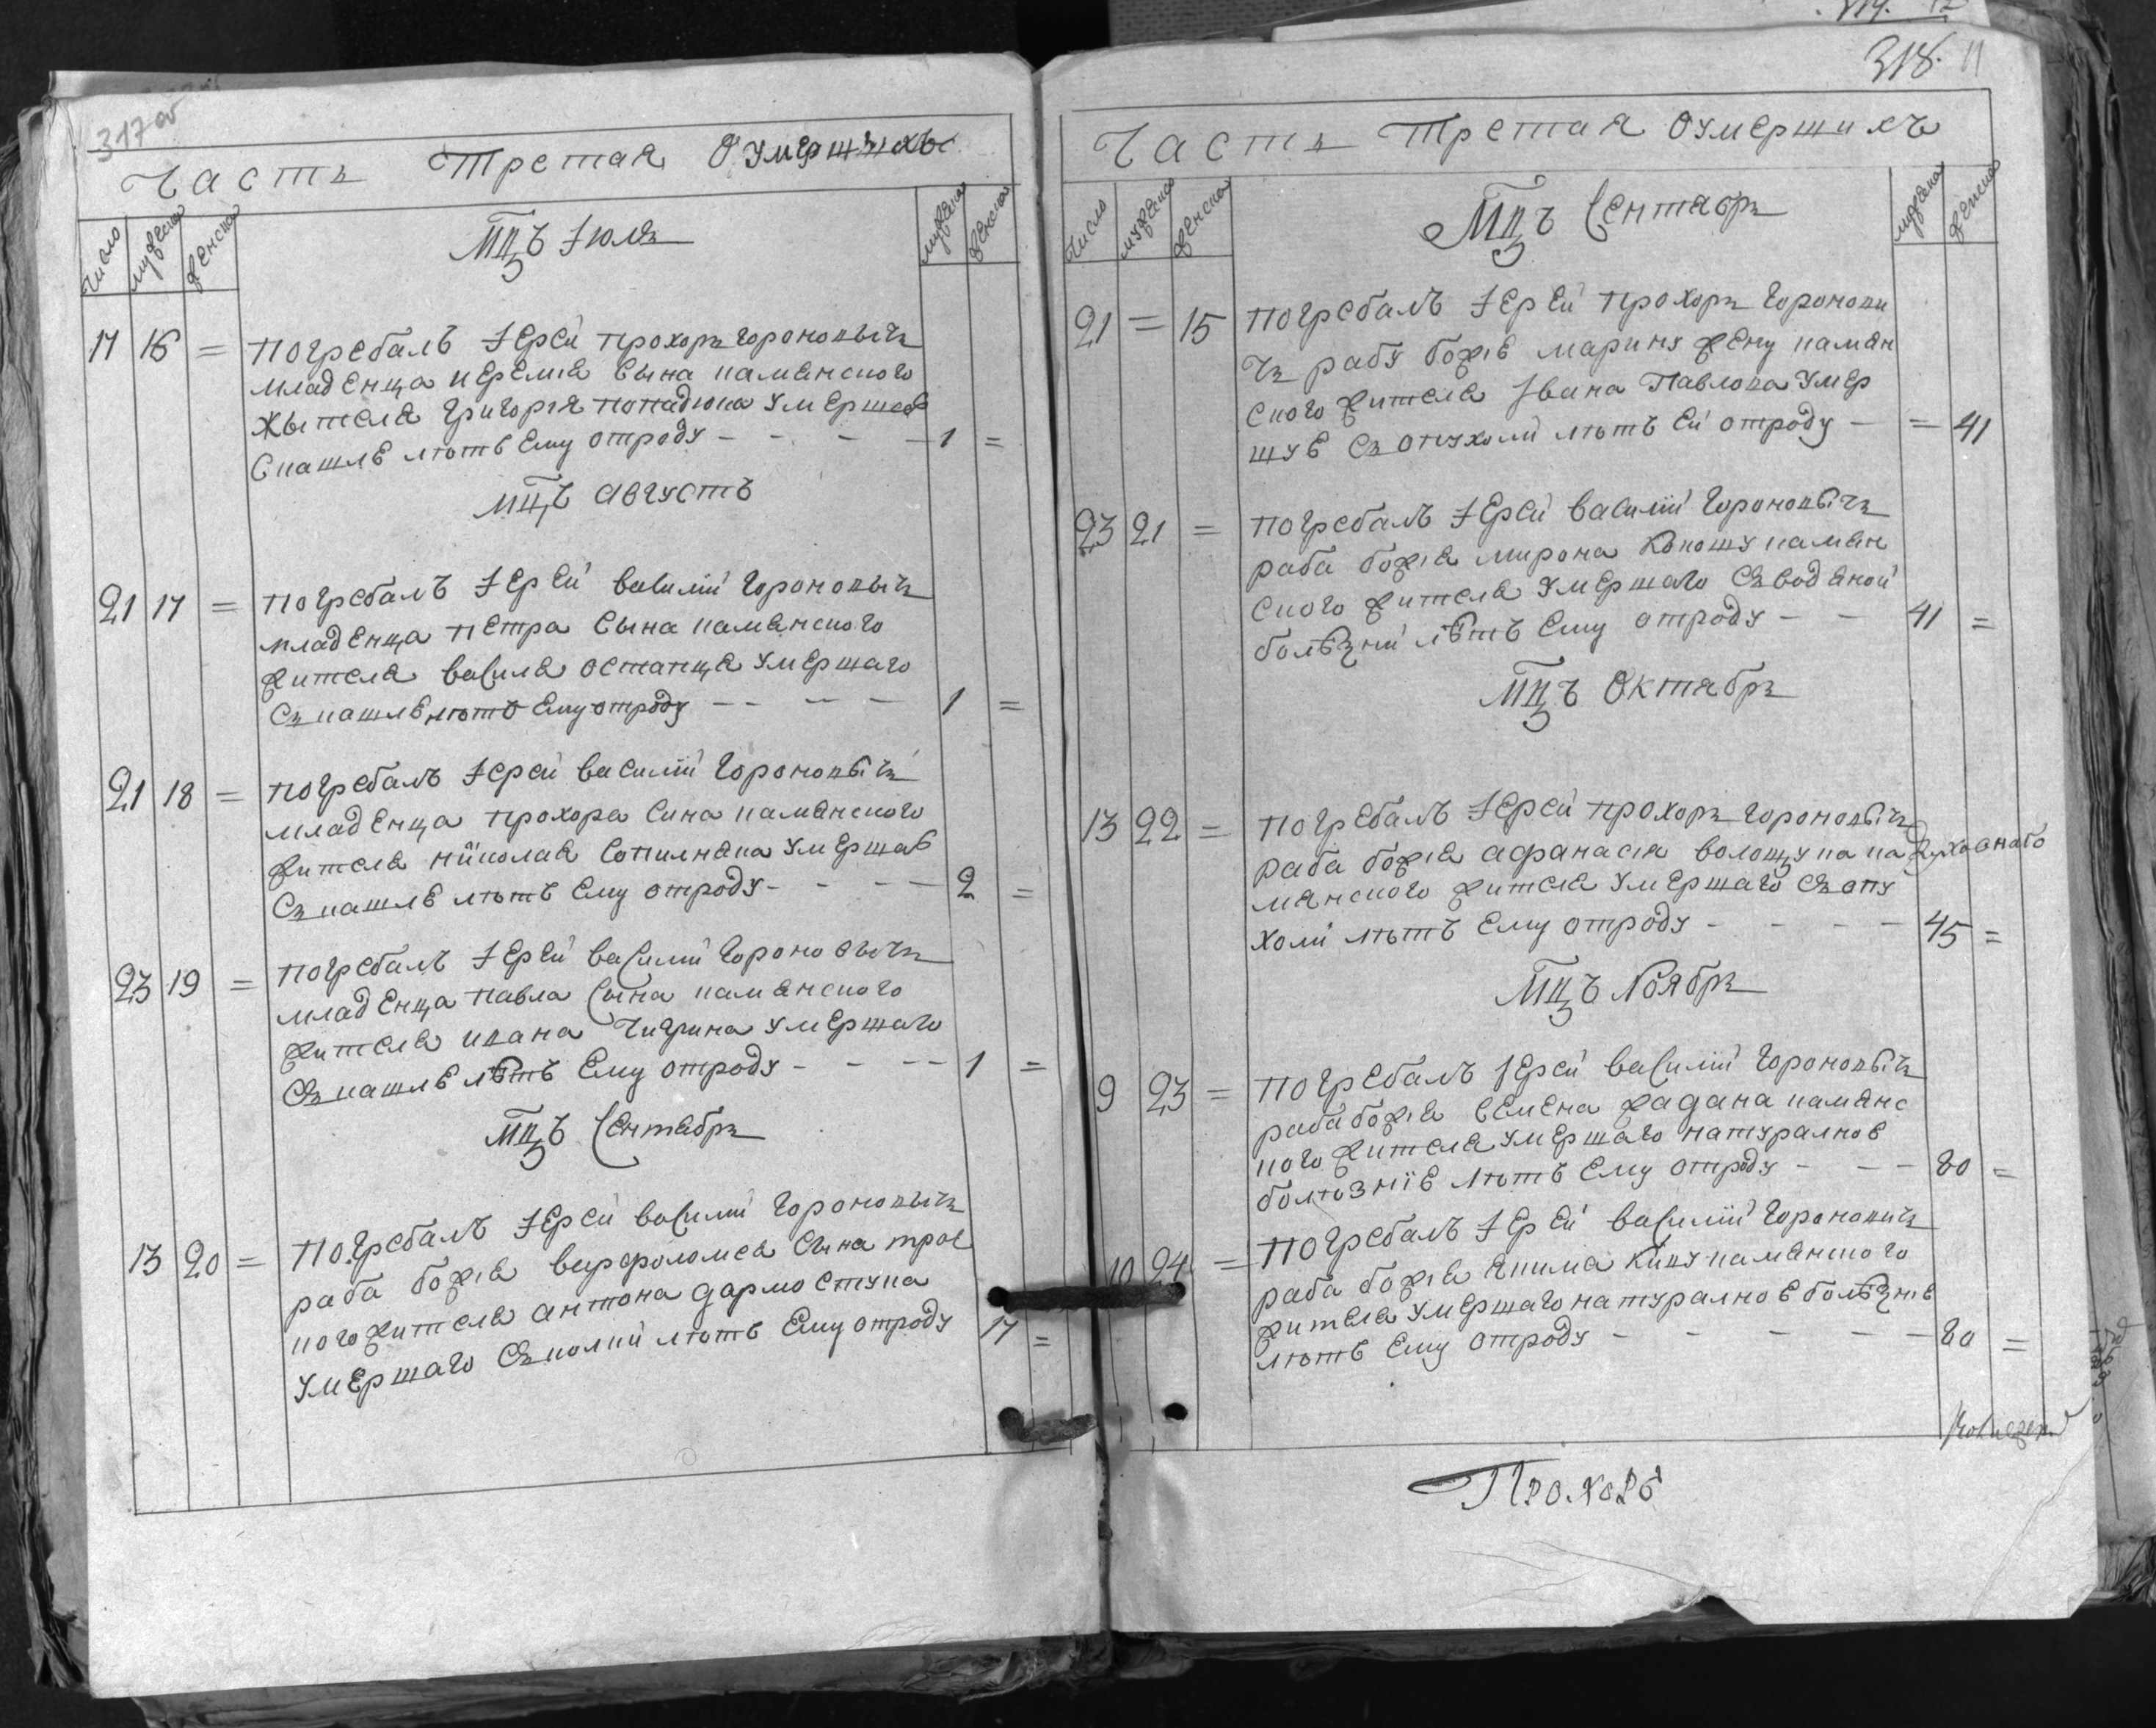 317 об
Часть Третая О умершихъ
число мужеска женска мужеска женска
Мцъ Июля
17 16 = погребалъ Iерей прохоръ Гороновычъ
младенца иеремiя сына каманского
жытеля григорiя попадюка умершаго
с кашлѣ лѣтъ ему отроду - - - - 1 =
мцъ августъ
21 17 = погребалъ Iерей василий Гороновычъ
младенца петра сына каманского
жителя василя остапца умершаго
съ кашлѣ лѣтъ ему отроду - - - - 1 =
21 18 = погребалъ Iерей василий Гороновычъ
младенца прохора сина каманского
жителя николая сопилняка умершаго
съ кашлѣ лѣтъ ему отроду - - - - 2 =
23 19 = погребалъ Iерей василий Гороновычъ
младенца павла сына каманского
жителя ивана Чигрина умершаго
съ кашлѣ лѣтъ ему отроду - - - - 1 =
Мцъ Сентябръ
13 20 = погребалъ Iерей василий Гороновычъ
раба божiя варфоломея сына троя
кого жителя антона дармоступа
умершаго съ колки лѣтъ ему отроду 17 =
318. 11
Часть Третая О умершихъ
число мужеска женска мужеска женска
Мцъ Сентябръ
21 = 15 погребалъ Iерей прохоръ Горонови
чъ рабу божiе марину жену каман
ского жителя Iвана Павлова умер
шуе съ опухоли лѣтъ ей отроду - = 41
23 21 = погребалъ Iерей василий Гороновычъ
раба божiя мирона Кокошу каман
ского жителя умершаго съ водяной
болѣзни лѣтъ ему отроду - - 41 =
Мцъ Октябръ
13 22 = погребалъ Iерей прохоръ Гороновычъ
раба божiя афанасiя волощука ка
манского жителя умершаго съ опу
холи лѣтъ ему отроду - - - - 45 =
Мцъ Ноябръ
9 23 = погребалъ Iерей василий Гороновычъ
раба божiя семена жадана каманс
кого жителя умершаго натуралное
болѣзнiе лѣтъ ему отроду - - - 80 =
10 24 = погребалъ Iерей василий Гороновичъ
раба божiя якима Кику каманского
жителя умершаго натуралное болѣзнiе
лѣтъ ему отроду - - - - - 80 =
Прохоръ